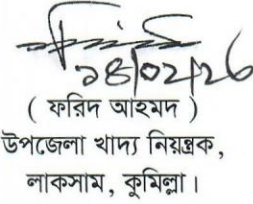 ১৪/০২/২৬
( ফরিদ আহমদ )
উপজেলা খাদ্য নিয়ন্ত্রক,
লাকসাম, কুমিল্লা।